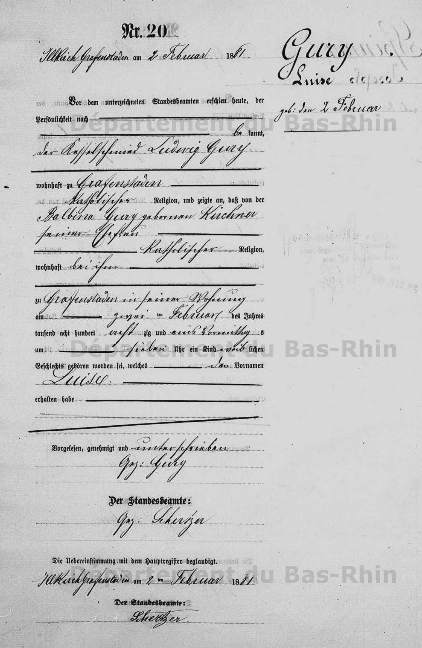 Nr. 20
Illkirch-Grafenstaden am 2 Februar 1881.
Gury
Luise
geb. den 2 Februar
Vor dem unterzeichneten Standesbeamten erschien heute, der
Persönlichkeit nach
be kannt,
der Kesselschmied Ludwig Gury
wohnhaft zu Grafenstaden
katholischer Religion, und zeigte an, daß von der
Balbina Gury gebornen Kirchner
seiner Ehefrau
katholischer Religion,
wohnhaft bei ihm
zu Grafenstaden in seiner Wohnung
am zwei ten Februar des Jahres
tausend acht hundert acht zig und eins Vormittags
um sieben Uhr ein Kind weib lichen
Geschlechts geboren worden sei, welches den Vornamen
Luise
erhalten habe
Vorgelesen, genehmigt und unterschrieben
Gez: Gury
Der Standesbeamte:
Gez. Schertzer
Die Uebereinstimmung mit dem Hauptregister beglaubigt.
Illkirch-Grafenstaden am 2 ten Februar 1881.
Der Standesbeamte:
Schertzer
Département du Bas-Rhin
Département du Bas-Rhin
Département du Bas-Rhin